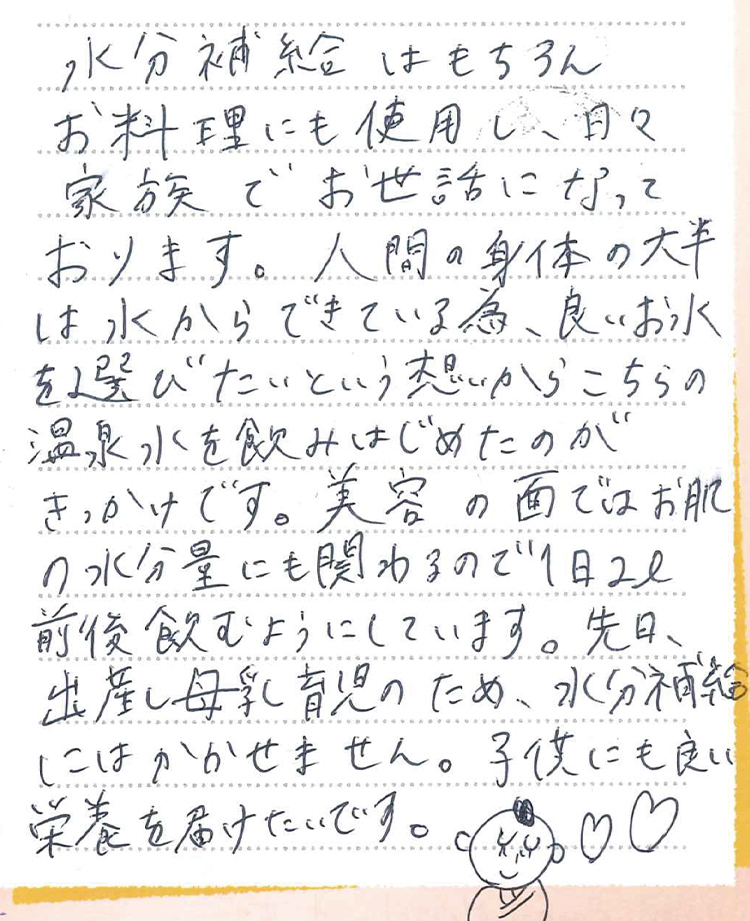 水分補給はもちろん
お料理にも使用し、日々
家族でお世話になって
おります。人間の身体の大半
は水からできている為、良いお水
を選びたいという想いからこちらの
温泉水を飲みはじめたのが
きっかけです。美容の面ではお肌
の水分量にも関わるので1日2ℓ
前後飲むようにしています。先日、
出産し母乳育児のため、水分補給
にはかかせません。子供にも良い
栄養を届けたいです。